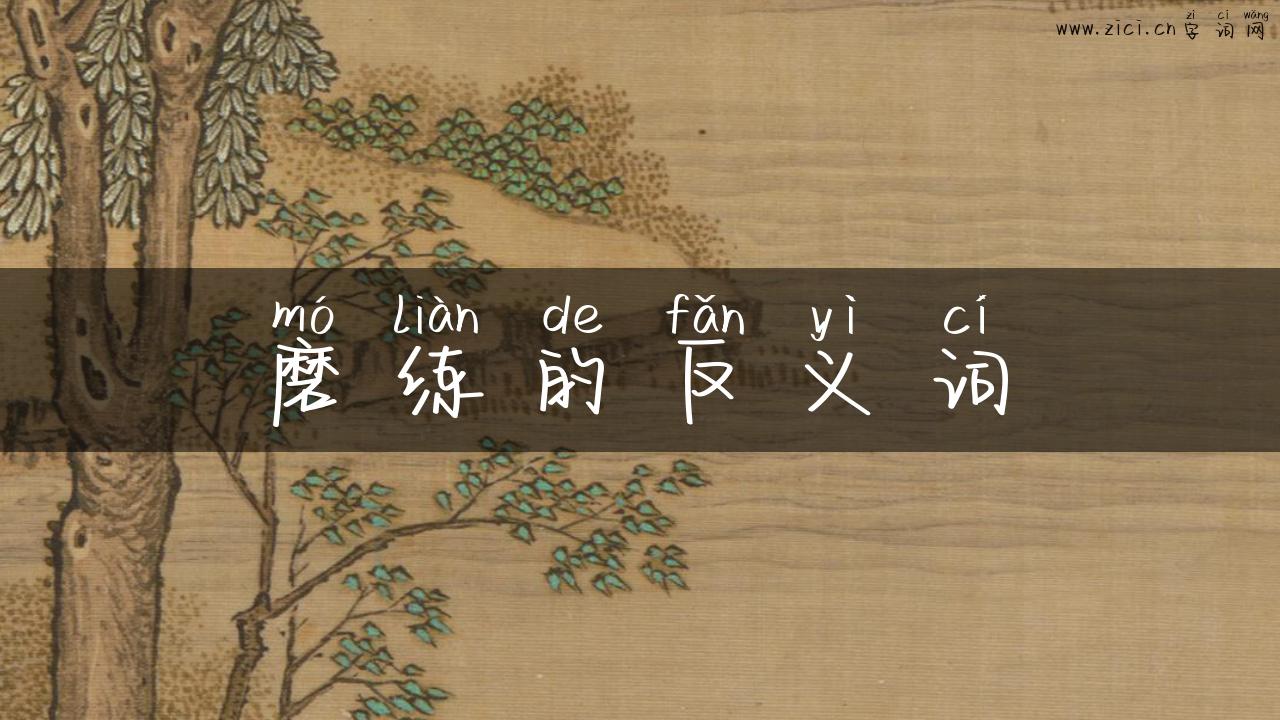 zì cí wǎng
www.zici.cn 字 词 网
mó liàn de fǎn yì cí
磨 练 的 反 义 词